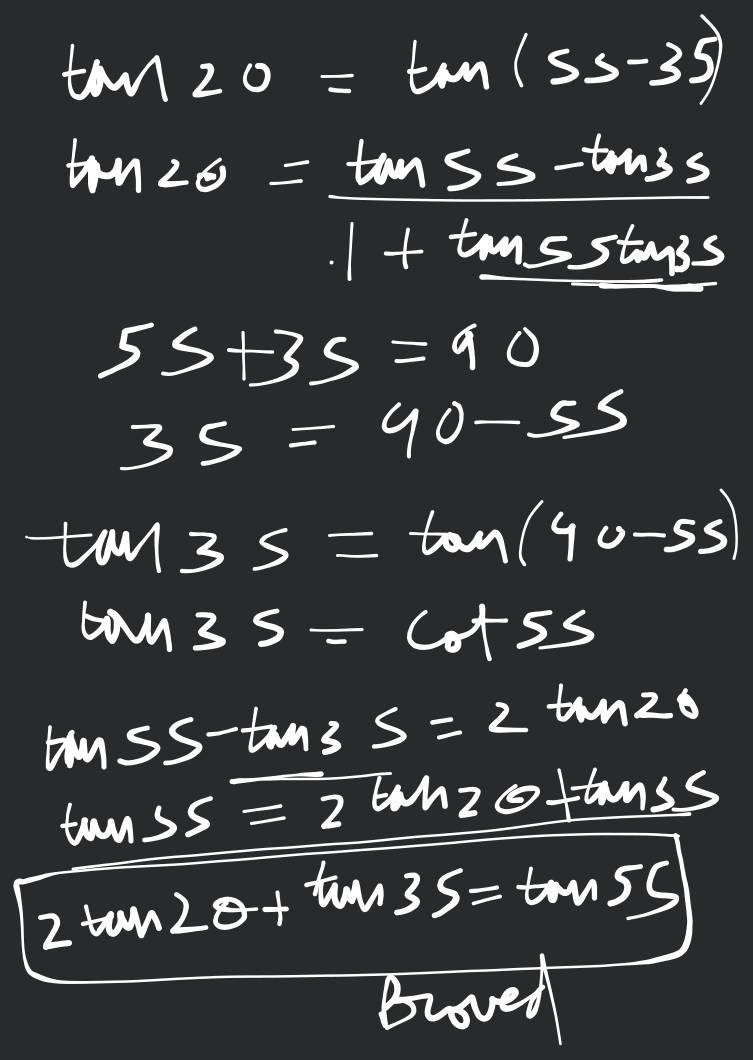 tan 20 = tan (55-35)
tan 20 = tan 55 - tan 35
1 + tan 55 tan 35
55+35 = 90
35 = 90-55
tan 35 = tan(90-55)
tan 35 = cot 55
tan 55 - tan 35 = 2 tan 20
tan 55 = 2 tan 20 + tan 35
2 tan 20 + tan 35 = tan 55
Proved